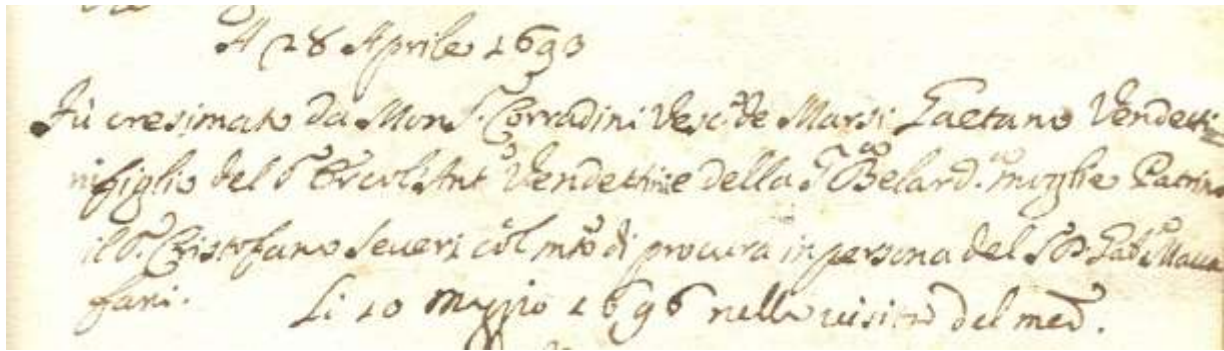 A 28 Aprile 1693
Fù cresimato da Mons.r Corradini Vesc.o de Marsi Gaetano Vendetti=
ni figlio del S.r Ercol: Ant.o Vendettini e della S.ra Belard.a moglie Patrino
il S.r Cristofano Severi col m.to di procura in persona del S.r D. Gab.e Macca
fani.
Li 10 Maggio 1696 nella visita del med.o